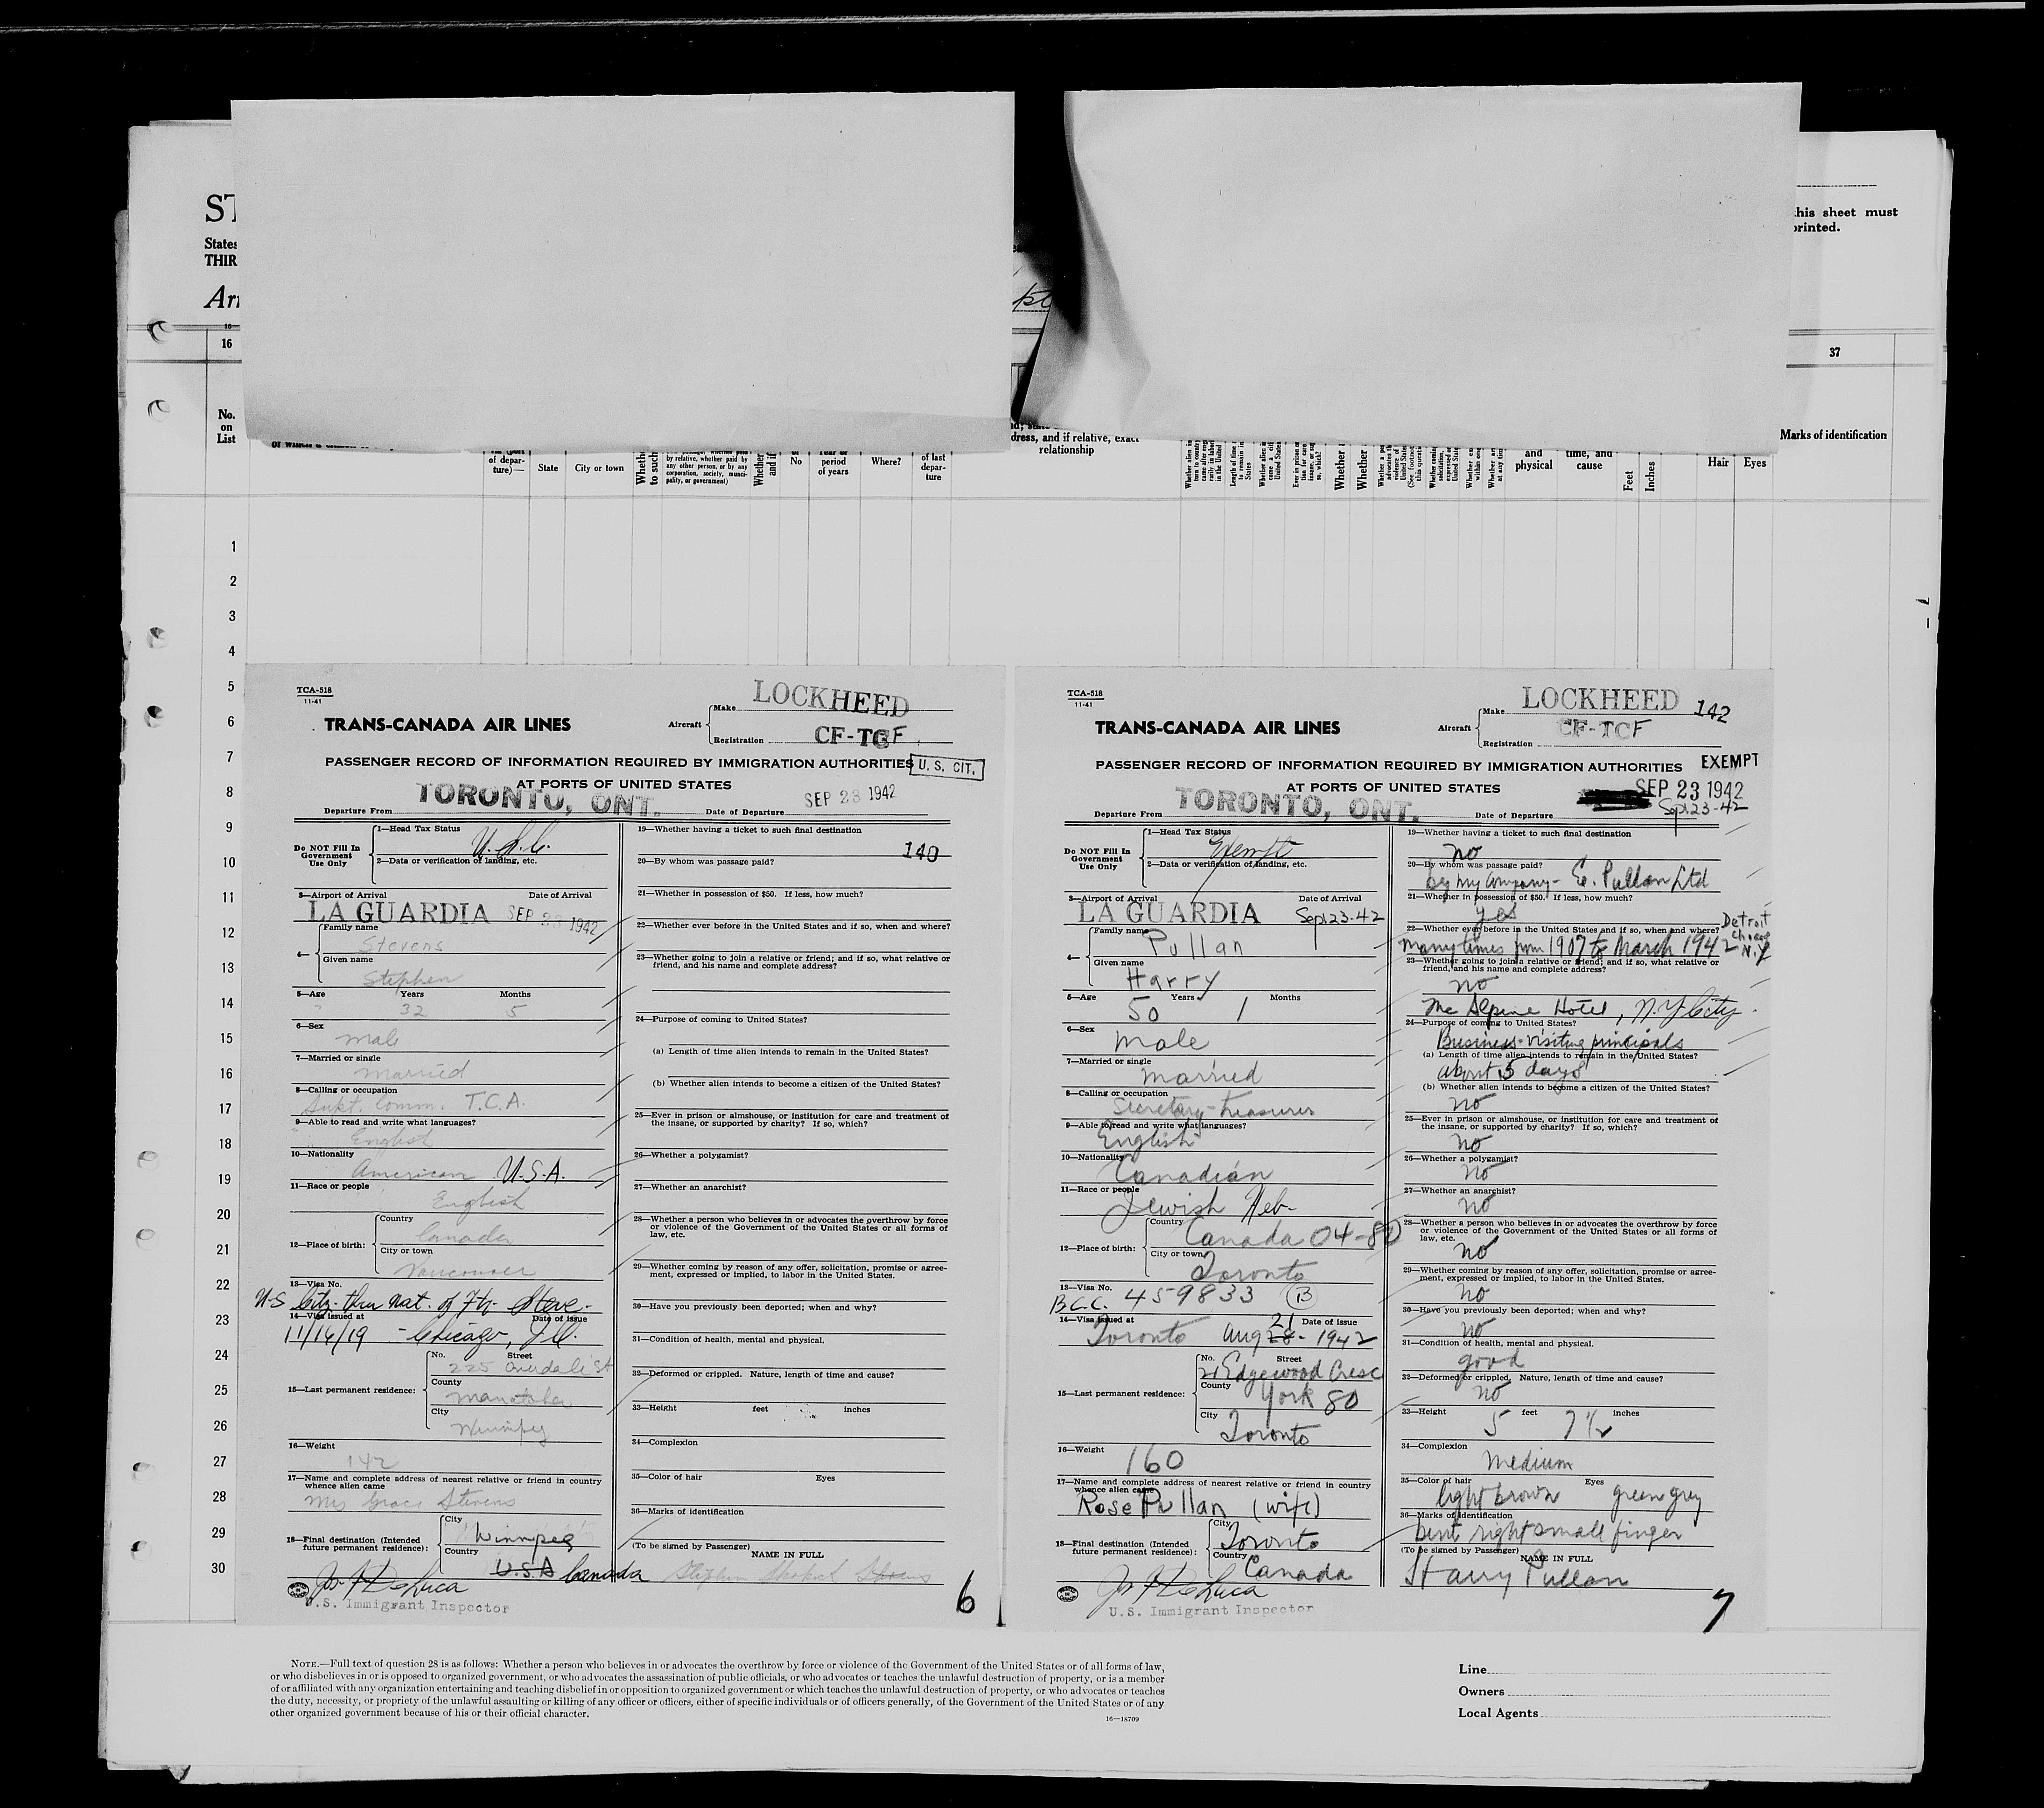 ST
States
THIR
Arr
this sheet must
printed.
16
37
No.
on
List
of depar-
ture)—
State
City or town
Whethe
to such
by relative, whether paid by
any other person, or by any
corporation, society, munici-
pality, or government)
Whether
and if
No
period
of years
Where?
of last
depar-
ture
dress, and if relative, exact
relationship
and
physical
time, and
cause
Feet
Inches
Hair
Eyes
Marks of identification
1
2
3
4
5
6
7
8
9
10
11
12
13
14
15
16
17
18
19
20
21
22
23
24
25
26
27
28
29
30
TCA-518
11-41
TRANS-CANADA AIR LINES
Aircraft
Make LOCKHEED
Registration CF-TCF
PASSENGER RECORD OF INFORMATION REQUIRED BY IMMIGRATION AUTHORITIES
U. S. CIT.
AT PORTS OF UNITED STATES
Departure From TORONTO, ONT. Date of Departure SEP 23 1942
Do NOT Fill In
Government
Use Only
1—Head Tax Status U.S.C.
2—Data or verification of landing, etc.
3—Airport of Arrival Date of Arrival
LA GUARDIA SEP 23 1942
4—
Family name
Stevens
Given name
Stephen
5—Age Years Months
32 5
6—Sex
male
7—Married or single
married
8—Calling or occupation
Supt. Comm. T.C.A.
9—Able to read and write what languages?
English
10—Nationality
American U.S.A.
11—Race or people
English
12—Place of birth:
Country
Canada
City or town
Vancouver
13—Visa No.
U.S. Citz. thru Nat. of Fr. Steve.
14—Visa issued at Date of issue
11/16/19 - Chicago, Ill.
15—Last permanent residence:
No. Street
225 Overdale St
County
Manitoba
City
Winnipeg
16—Weight
142
17—Name and complete address of nearest relative or friend in country
whence alien came
Mrs Grace Stevens
18—Final destination (Intended
future permanent residence):
City
Winnipeg
Country
U.S.A Canada
Jos. F. DeLuca
U.S. Immigrant Inspector
19—Whether having a ticket to such final destination
140
20—By whom was passage paid?
21—Whether in possession of $50. If less, how much?
22—Whether ever before in the United States and if so, when and where?
23—Whether going to join a relative or friend; and if so, what relative or
friend, and his name and complete address?
24—Purpose of coming to United States?
(a) Length of time alien intends to remain in the United States?
(b) Whether alien intends to become a citizen of the United States?
25—Ever in prison or almshouse, or institution for care and treatment of
the insane, or supported by charity? If so, which?
26—Whether a polygamist?
27—Whether an anarchist?
28—Whether a person who believes in or advocates the overthrow by force
or violence of the Government of the United States or all forms of
law, etc.
29—Whether coming by reason of any offer, solicitation, promise or agree-
ment, expressed or implied, to labor in the United States.
30—Have you previously been deported; when and why?
31—Condition of health, mental and physical.
32—Deformed or crippled. Nature, length of time and cause?
33—Height feet inches
34—Complexion
35—Color of hair Eyes
36—Marks of identification
(To be signed by Passenger)
NAME IN FULL
Stephen Stevens
6
TCA-518
11-41
TRANS-CANADA AIR LINES
Aircraft
Make LOCKHEED 142
Registration CF-TCF
PASSENGER RECORD OF INFORMATION REQUIRED BY IMMIGRATION AUTHORITIES
EXEMPT
AT PORTS OF UNITED STATES
SEP 23 1942
Departure From TORONTO, ONT. Date of Departure Sept 23-42
Do NOT Fill In
Government
Use Only
1—Head Tax Status
Exempt
2—Data or verification of landing, etc.
3—Airport of Arrival Date of Arrival
LA GUARDIA Sept 23-42
4—
Family name
Pullan
Given name
Harry
5—Age Years Months
50 1
6—Sex
Male
7—Married or single
Married
8—Calling or occupation
Secretary-Treasurer
9—Able to read and write what languages?
English
10—Nationality
Canadian
11—Race or people
Jewish Heb.
12—Place of birth:
Country
Canada 04-80
City or town
Toronto
13—Visa No.
B.C.C. 459833 B
14—Visa issued at Date of issue
Toronto Aug 28 21 - 1942
15—Last permanent residence:
No. Street
21 Edgewood Cresc
County
York 80
City
Toronto
16—Weight
160
17—Name and complete address of nearest relative or friend in country
whence alien came
Rose Pullan (wife)
18—Final destination (Intended
future permanent residence):
City
Toronto
Country
Canada
Jos. F. DeLuca
U.S. Immigrant Inspector
19—Whether having a ticket to such final destination
no
20—By whom was passage paid?
by my company - E. Pullan Ltd
21—Whether in possession of $50. If less, how much?
yes
22—Whether ever before in the United States and if so, when and where?
Detroit
Chicago
N.Y
many times from 1907 to March 1942
23—Whether going to join a relative or friend; and if so, what relative or
friend, and his name and complete address?
no
Mc Alpine Hotel, N.Y. City.
24—Purpose of coming to United States?
Business-visiting principals
(a) Length of time alien intends to remain in the United States?
about 5 days
(b) Whether alien intends to become a citizen of the United States?
no
25—Ever in prison or almshouse, or institution for care and treatment of
the insane, or supported by charity? If so, which?
no
26—Whether a polygamist?
no
27—Whether an anarchist?
no
28—Whether a person who believes in or advocates the overthrow by force
or violence of the Government of the United States or all forms of
law, etc.
no
29—Whether coming by reason of any offer, solicitation, promise or agree-
ment, expressed or implied, to labor in the United States.
no
30—Have you previously been deported; when and why?
no
31—Condition of health, mental and physical.
good
32—Deformed or crippled. Nature, length of time and cause?
no
33—Height feet inches
5 7 1/2
34—Complexion
Medium
35—Color of hair Eyes
light brown green grey
36—Marks of identification
bent right small finger
(To be signed by Passenger)
NAME IN FULL
Harry Pullan
7
NOTE.—Full text of question 28 is as follows: Whether a person who believes in or advocates the overthrow by force or violence of the Government of the United States or of all forms of law,
or who disbelieves in or is opposed to organized government, or who advocates the assassination of public officials, or who advocates or teaches the unlawful destruction of property, or is a member
of or affiliated with any organization entertaining and teaching disbelief in or opposition to organized government or which teaches the unlawful destruction of property, or who advocates or teaches
the duty, necessity, or propriety of the unlawful assaulting or killing of any officer or officers, either of specific individuals or of officers generally, of the Government of the United States or of any
other organized government because of his or their official character.
16—18709
Line
Owners
Local Agents